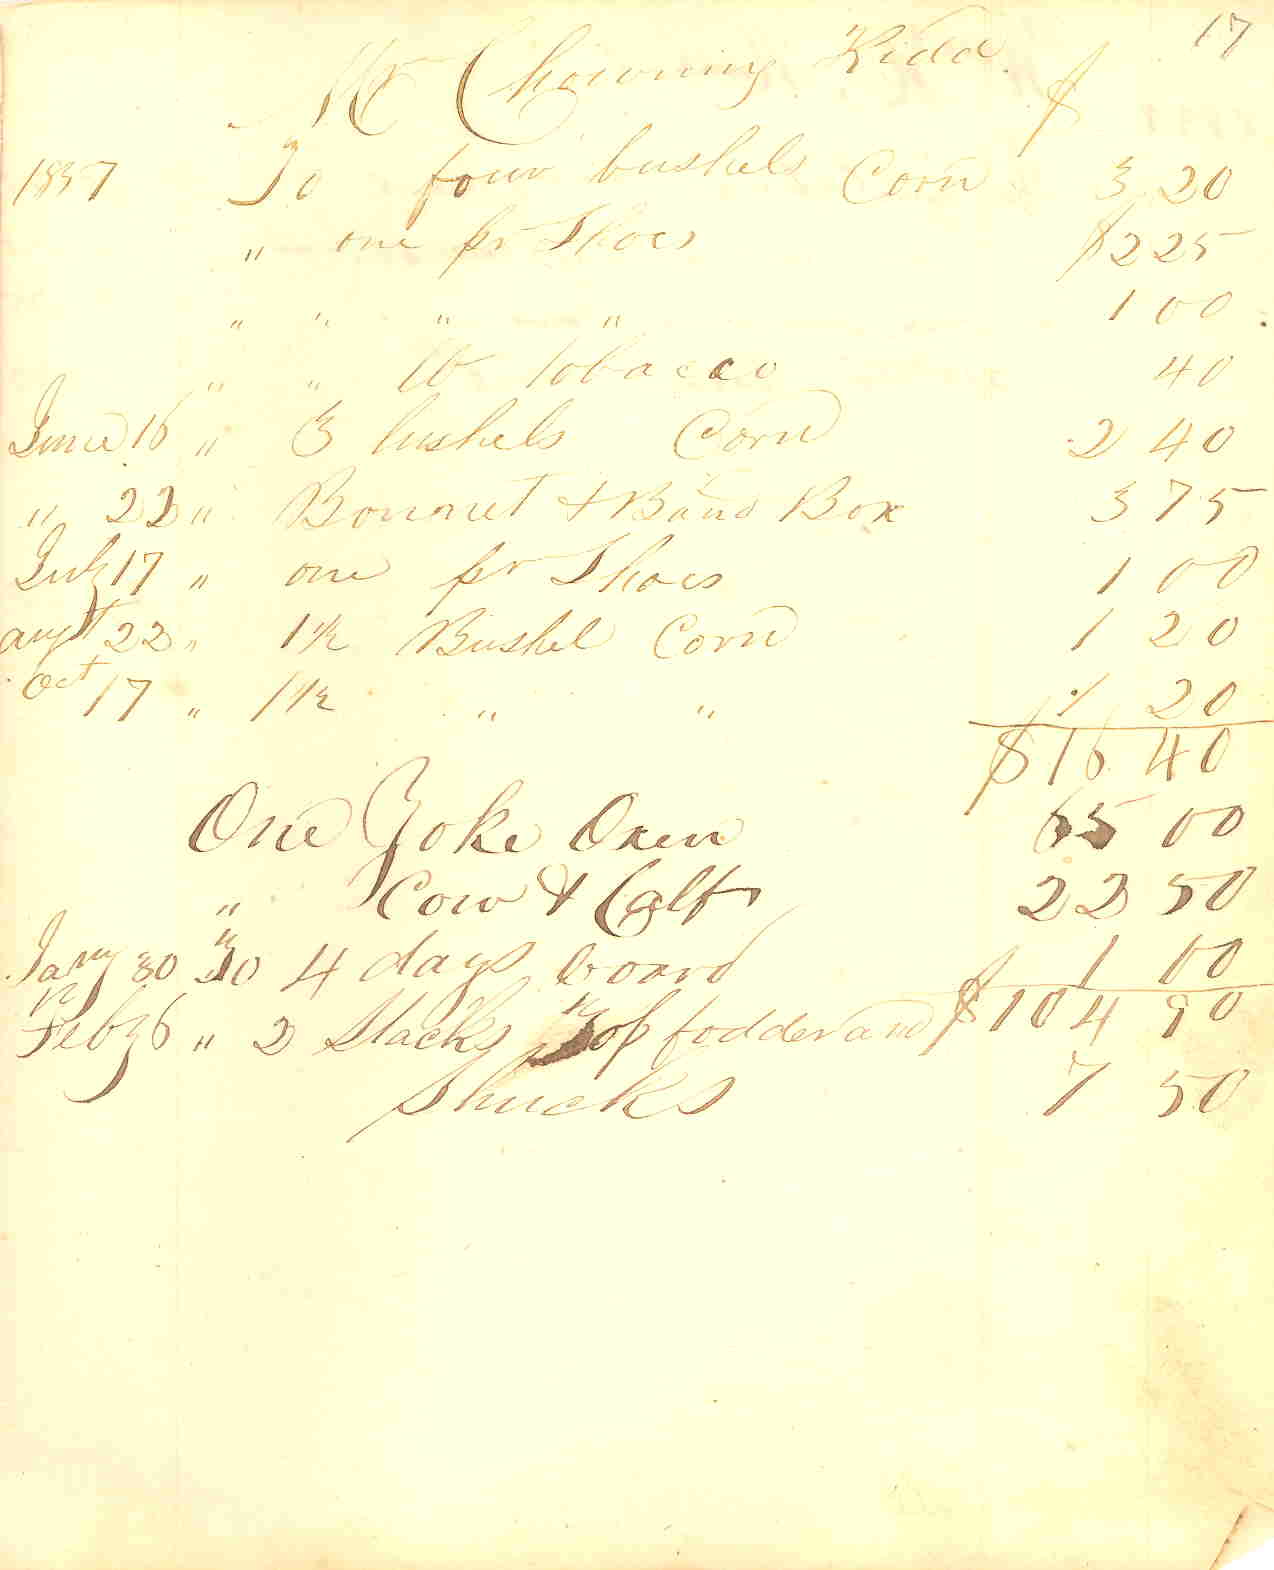 17
Mr Chowning Kidd $
1837 To four bushels Corn 3 20
" one pr Shoes $2 25
" " " " 1 00
" " lb tobacco 40
June 16 " 3 bushels Corn 2 40
" 22 " Bonnet & Band Box 3 75
July 17 " one pr Shoes 1 00
augt 22 " 1 1/2 Bushel Corn 1 20
Oct 17 " 1 1/2 " " 1 20
$16 40
One Yoke Oxen 65 00
" Cow & Calf 22 50
Jany 30 To 4 days board 1 00
$104 90
Feby 6 " 2 Stacks of fodder and
Shucks 7 50